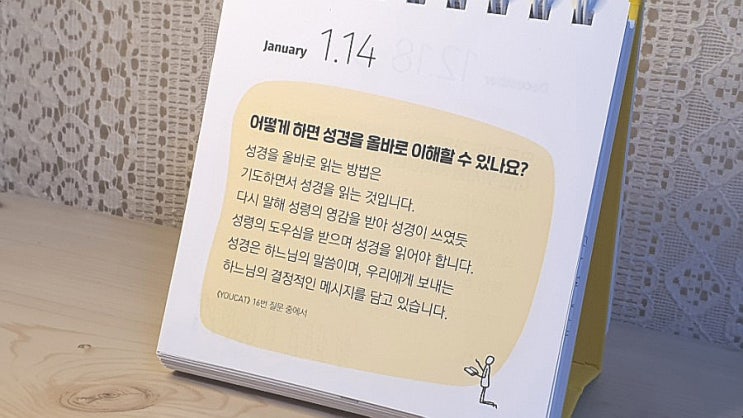 January 1.14
어떻게 하면 성경을 올바로 이해할 수 있나요?
성경을 올바로 읽는 방법은
기도하면서 성경을 읽는 것입니다.
다시 말해 성령의 영감을 받아 성경이 쓰였듯
성령의 도우심을 받으며 성경을 읽어야 합니다.
성경은 하느님의 말씀이며, 우리에게 보내는
하느님의 결정적인 메시지를 담고 있습니다.
《YOUCAT》 16번 질문 중에서